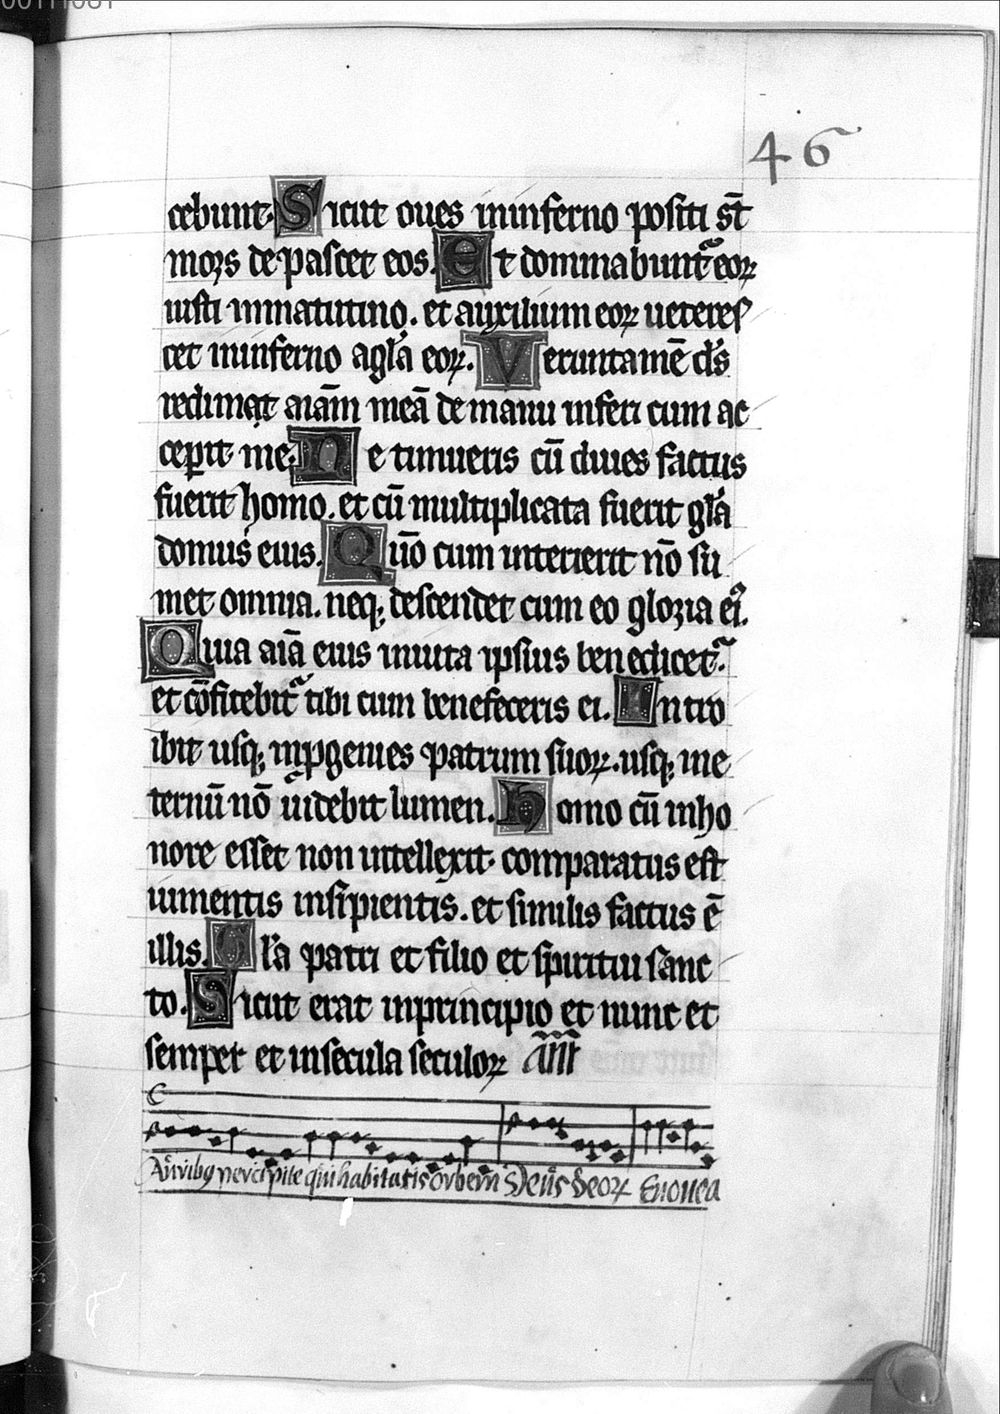 00111081
46
cebunt. Sicut oues ininferno positi st̄
mors depascet eos. Et dominabunt᷑ eoꝝ
iusti inmatutino. et auxilium eoꝝ ueteres
cet ininferno a gl̄a eoꝝ. Veruntamē ds̄
redimat aīam meā de manu inferi cum ac
ceperit me. Ne timueris cū diues factus
fuerit homo. et cū multiplicata fuerit gl̄a
domus eius. Qūo cum interierit nō su
met omnia. neqꝫ descendet cum eo gloria ei᷒.
Quia aīa eius inuita ipsius benedicet᷑.
et cōfitebit᷑ tibi cum benefeceris ei. Intro
ibit usqꝫ inpgenies patrum suoꝝ. usqꝫ ine
ternū nō uidebit lumen. Homo cū inho
nore esset non intellexit. comparatus est
iumentis insipientis. et similis factus ē
illis. Gl̄a patri et filio et spiritui sanc
to. Sicut erat inprincipio et nunc et
semper et insecula seculoꝝ am̄
Aurib᷒ percipite qui habitatis orbem Deus deoꝝ Euouea